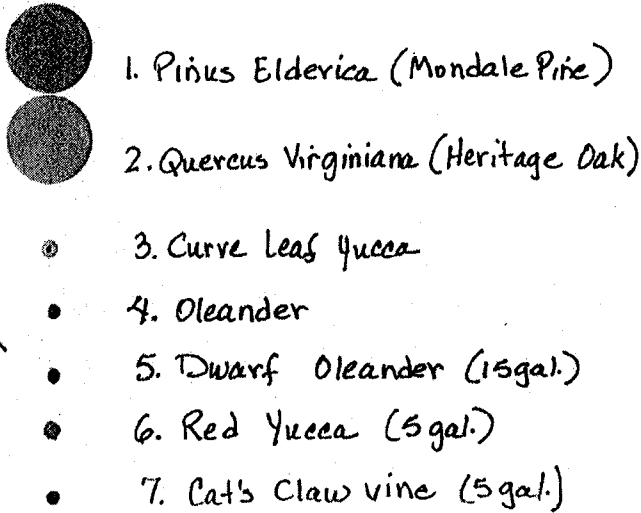 1. Pinus Elderica (Mondale Pine)
2. Quercus Virginiana (Heritage Oak)
3. Curve Leaf Yucca
4. Oleander
5. Dwarf Oleander (15gal.)
6. Red Yucca (5 gal.)
7. Cat's Claw vine (5 gal.)